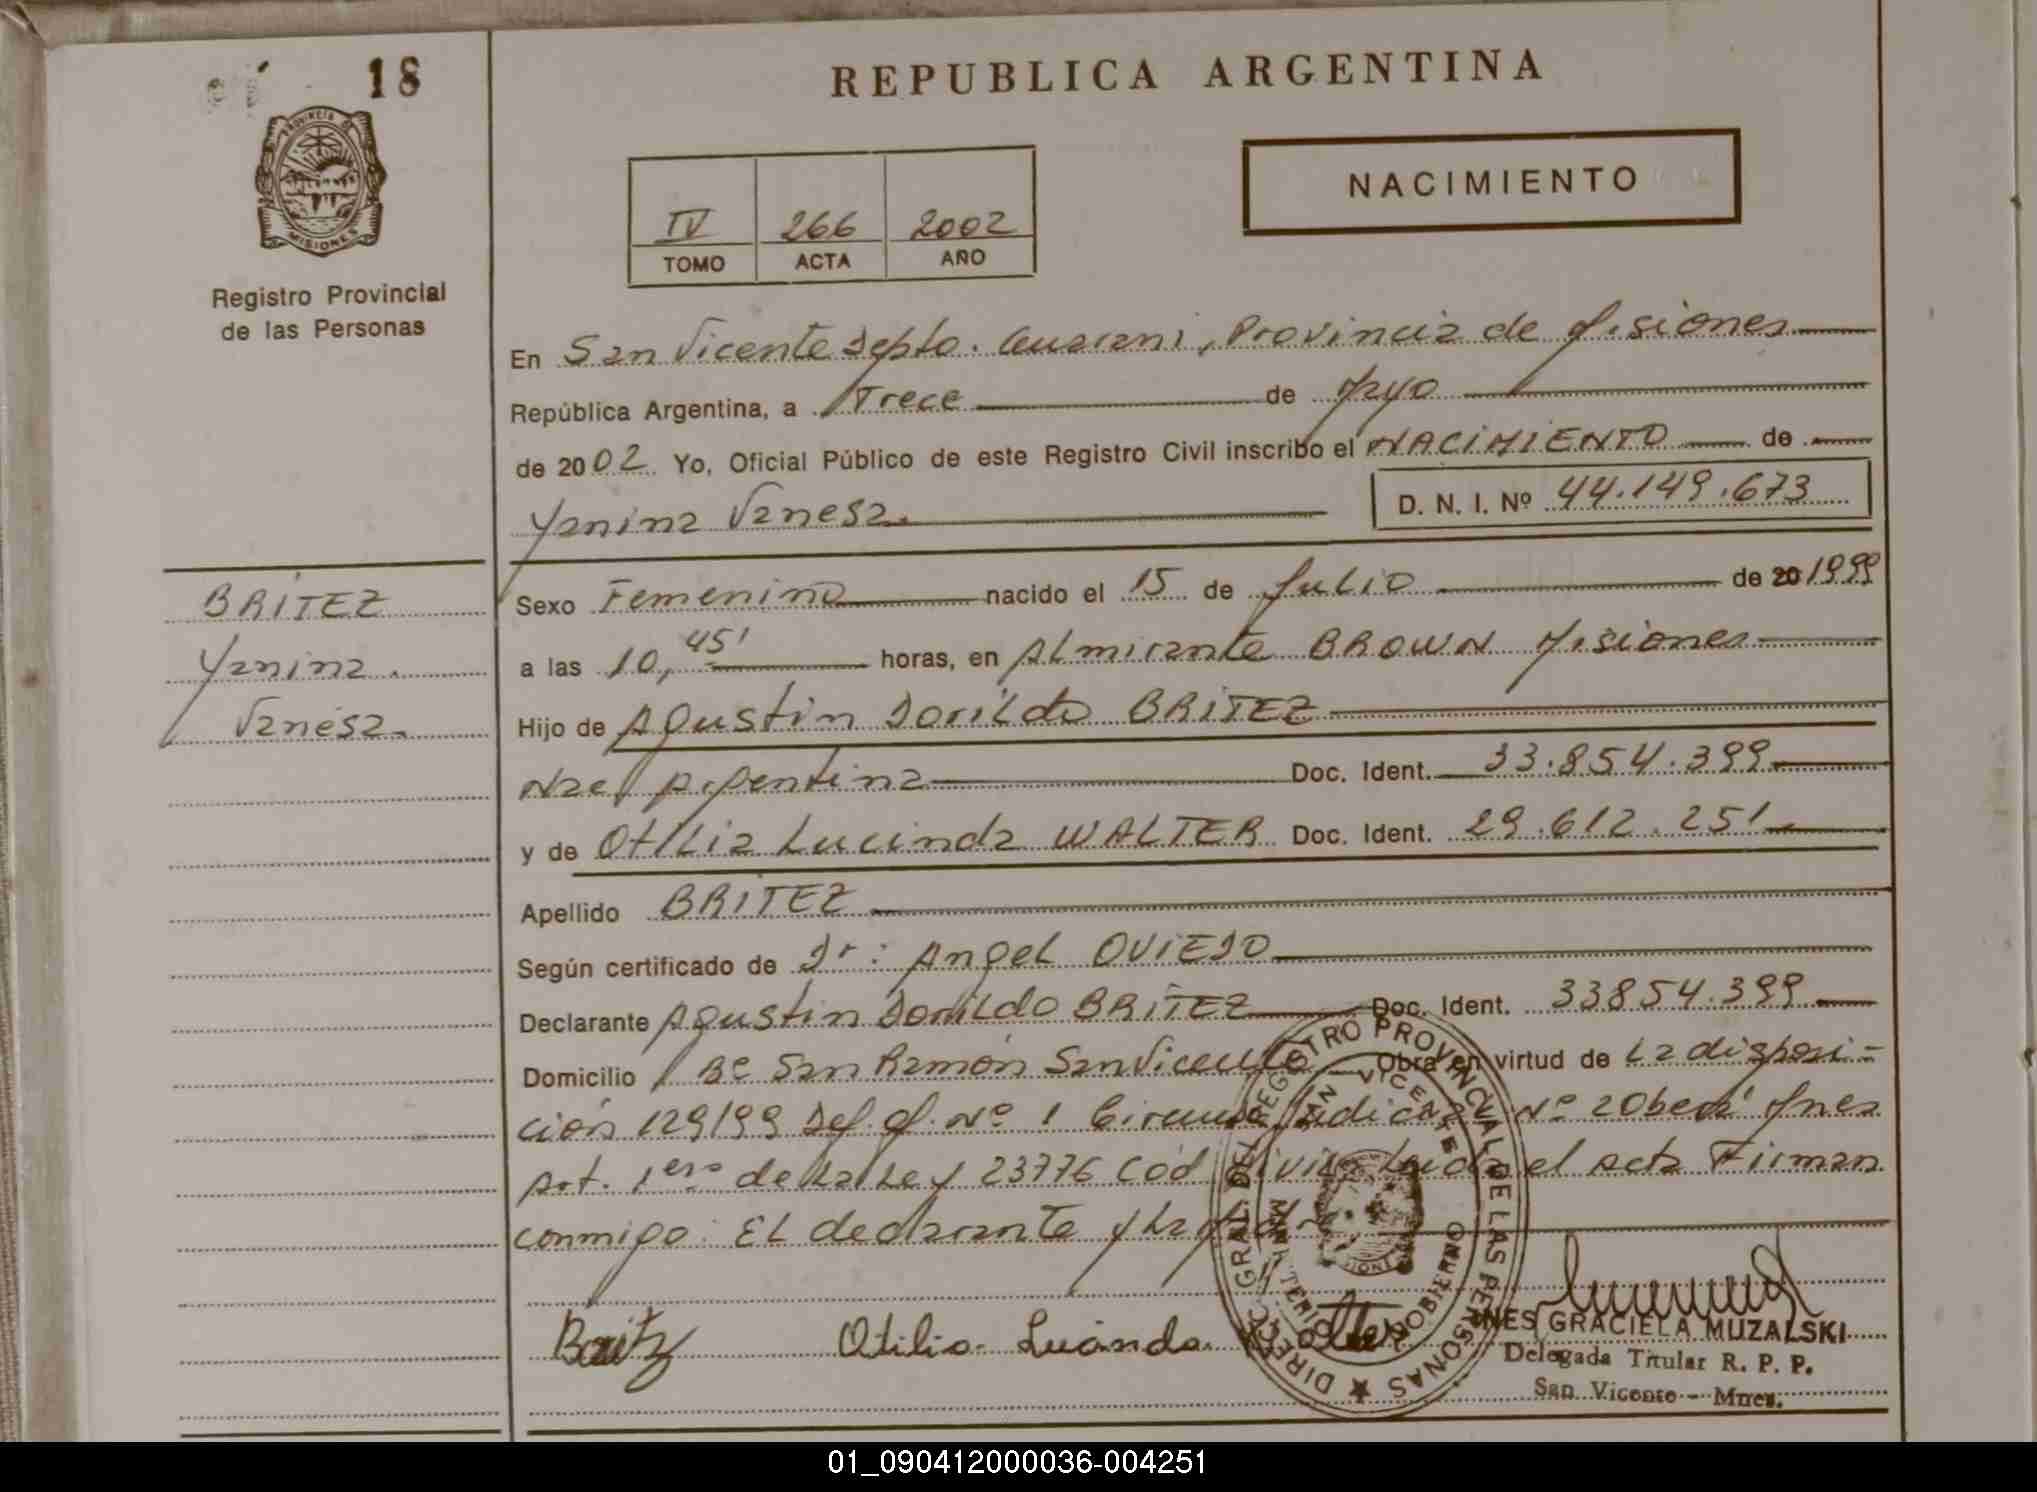 18
REPUBLICA ARGENTINA
PROVINCIA DE
MISIONES
Registro Provincial
de las Personas
NACIMIENTO
IV 266 2002
TOMO ACTA AÑO
En San Vicente Depto. Guarani, Provincia de Misiones
República Argentina, a Trece de Mayo
de 2002 Yo, Oficial Público de este Registro Civil inscribo el NACIMIENTO de
Yanina Vanesa. D. N. I. Nº 44.149.673
BRITEZ
Yanina
Vanesa.
Sexo Femenino nacido el 15 de Julio de 20 1999
a las 10,45' horas, en Almirante BROWN Misiones
Hijo de Agustin Dorildo BRITEZ
Nac Argentina Doc. Ident. 33.854.399
y de Otilia Lucinda WALTER Doc. Ident. 29.612.251
Apellido BRITEZ
Según certificado de Dr: Angel OVIEDO
Declarante Agustin Dorildo BRITEZ Doc. Ident. 33854.399
Domicilio Bº San Ramón San Vicente Obra en virtud de La disposi-
ción 129/99 Def. M. Nº 1 Circuns. Judicial Nº 2 Oberá Mnes
Art. 1ero de La Ley 23776 Cód. Civil Leida el Acta Firman
conmigo: EL declarante y La
Britz Otilia Lucinda Walter
INES GRACIELA MUZALSKI
Delegada Titular R. P. P.
San Vicente - Mnes.
DIRECC. GRAL. DEL REGISTRO PROVINCIAL DE LAS PERSONAS
SAN VICENTE
MINISTERIO GOBIERNO
01_090412000036-004251